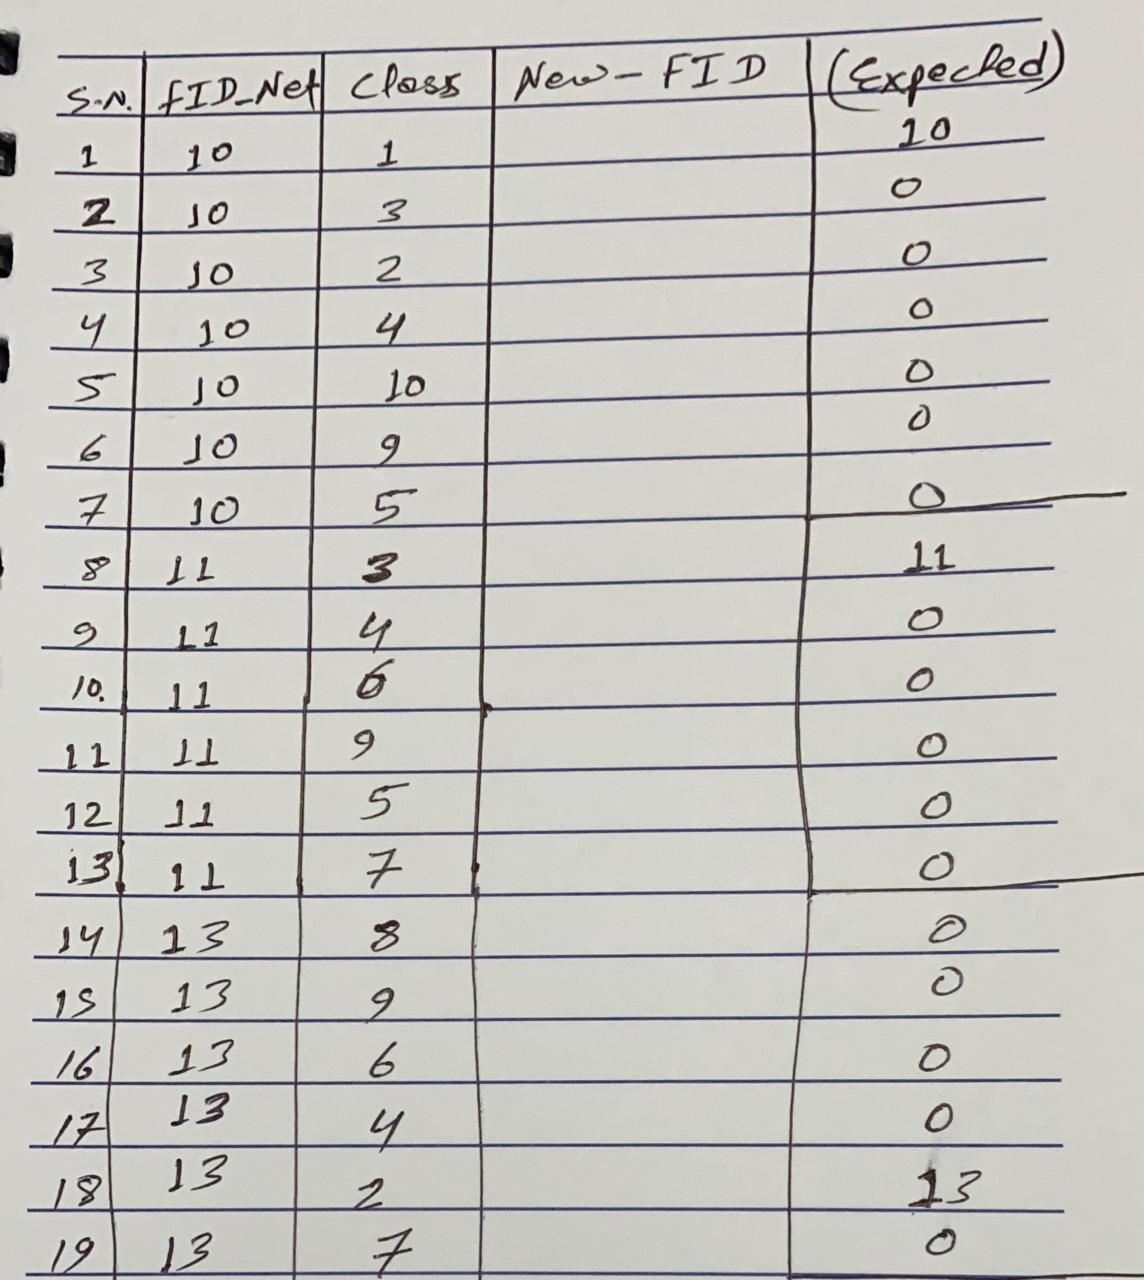 S.N. FID_Net Class New-FID (Expected)
1 10 1 10
2 10 3 0
3 10 2 0
4 10 4 0
5 10 10 0
6 10 9 0
7 10 5 0
8 11 3 11
9 11 4 0
10. 11 6 0
11 11 9 0
12 11 5 0
13 11 7 0
14 13 8 0
15 13 9 0
16 13 6 0
17 13 4 0
18 13 2 13
19 13 7 0